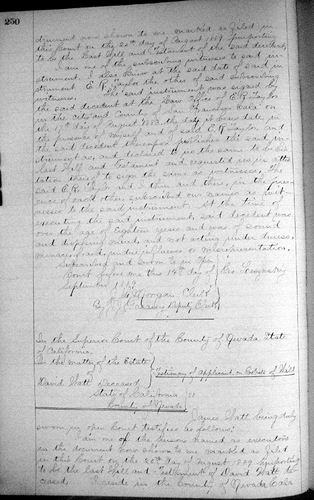 250
strument now shown to me marked as filed in
this Court on the 20th day of August 1889 purporting
to be the last Will and Testament of the said decedent,
I am one of the subscribing witnesses to said in-
strument. I also knew at the said date of said in-
strument E. R. Taylor the other of said subscribing
witnesses. The said instrument was signed by
the said decedent at the Law Office of E. R. Taylor
in the City and County of San Francisco Cala on
the day of August 1873. the day it bears date, in
the presence of myself and of said E. R. Taylor and
the said decedent thereupon published the said in-
strument as, and declared to us the same to be his
last Will and Testament and requested us in attes-
tation thereof to sign the same as witnesses. The
said E. R. Taylor and I then and there, in the pres-
ence of each other, subscribed our names as wit-
nesses to the said instrument. At the time of
executing the said instrument, said decedent was
over the age of Eighteen years and was of sound
and disposing mind, and not acting under duress,
menace, fraud, undue influence or misrepresentation.
Subscribed and sworn to in open
Court before me this 14th day of
September 1889
Morgan Clerk
By Deputy Clerk
In the Superior Court of the County of Nevada State
of California.
In the matter of the Estate
of
David Watt Deceased
Testimony of applicant on Probate of Will
State of California
County of Nevada ss
James Watt being duly
sworn in open Court testifies as follows:
I am one of the persons named as executors
in the document now shown to me marked as filed
in this Court on the 20th day of August 1889 purporting
to be the last Will and Testament of David Watt de-
ceased. I reside in the County of Nevada Cala